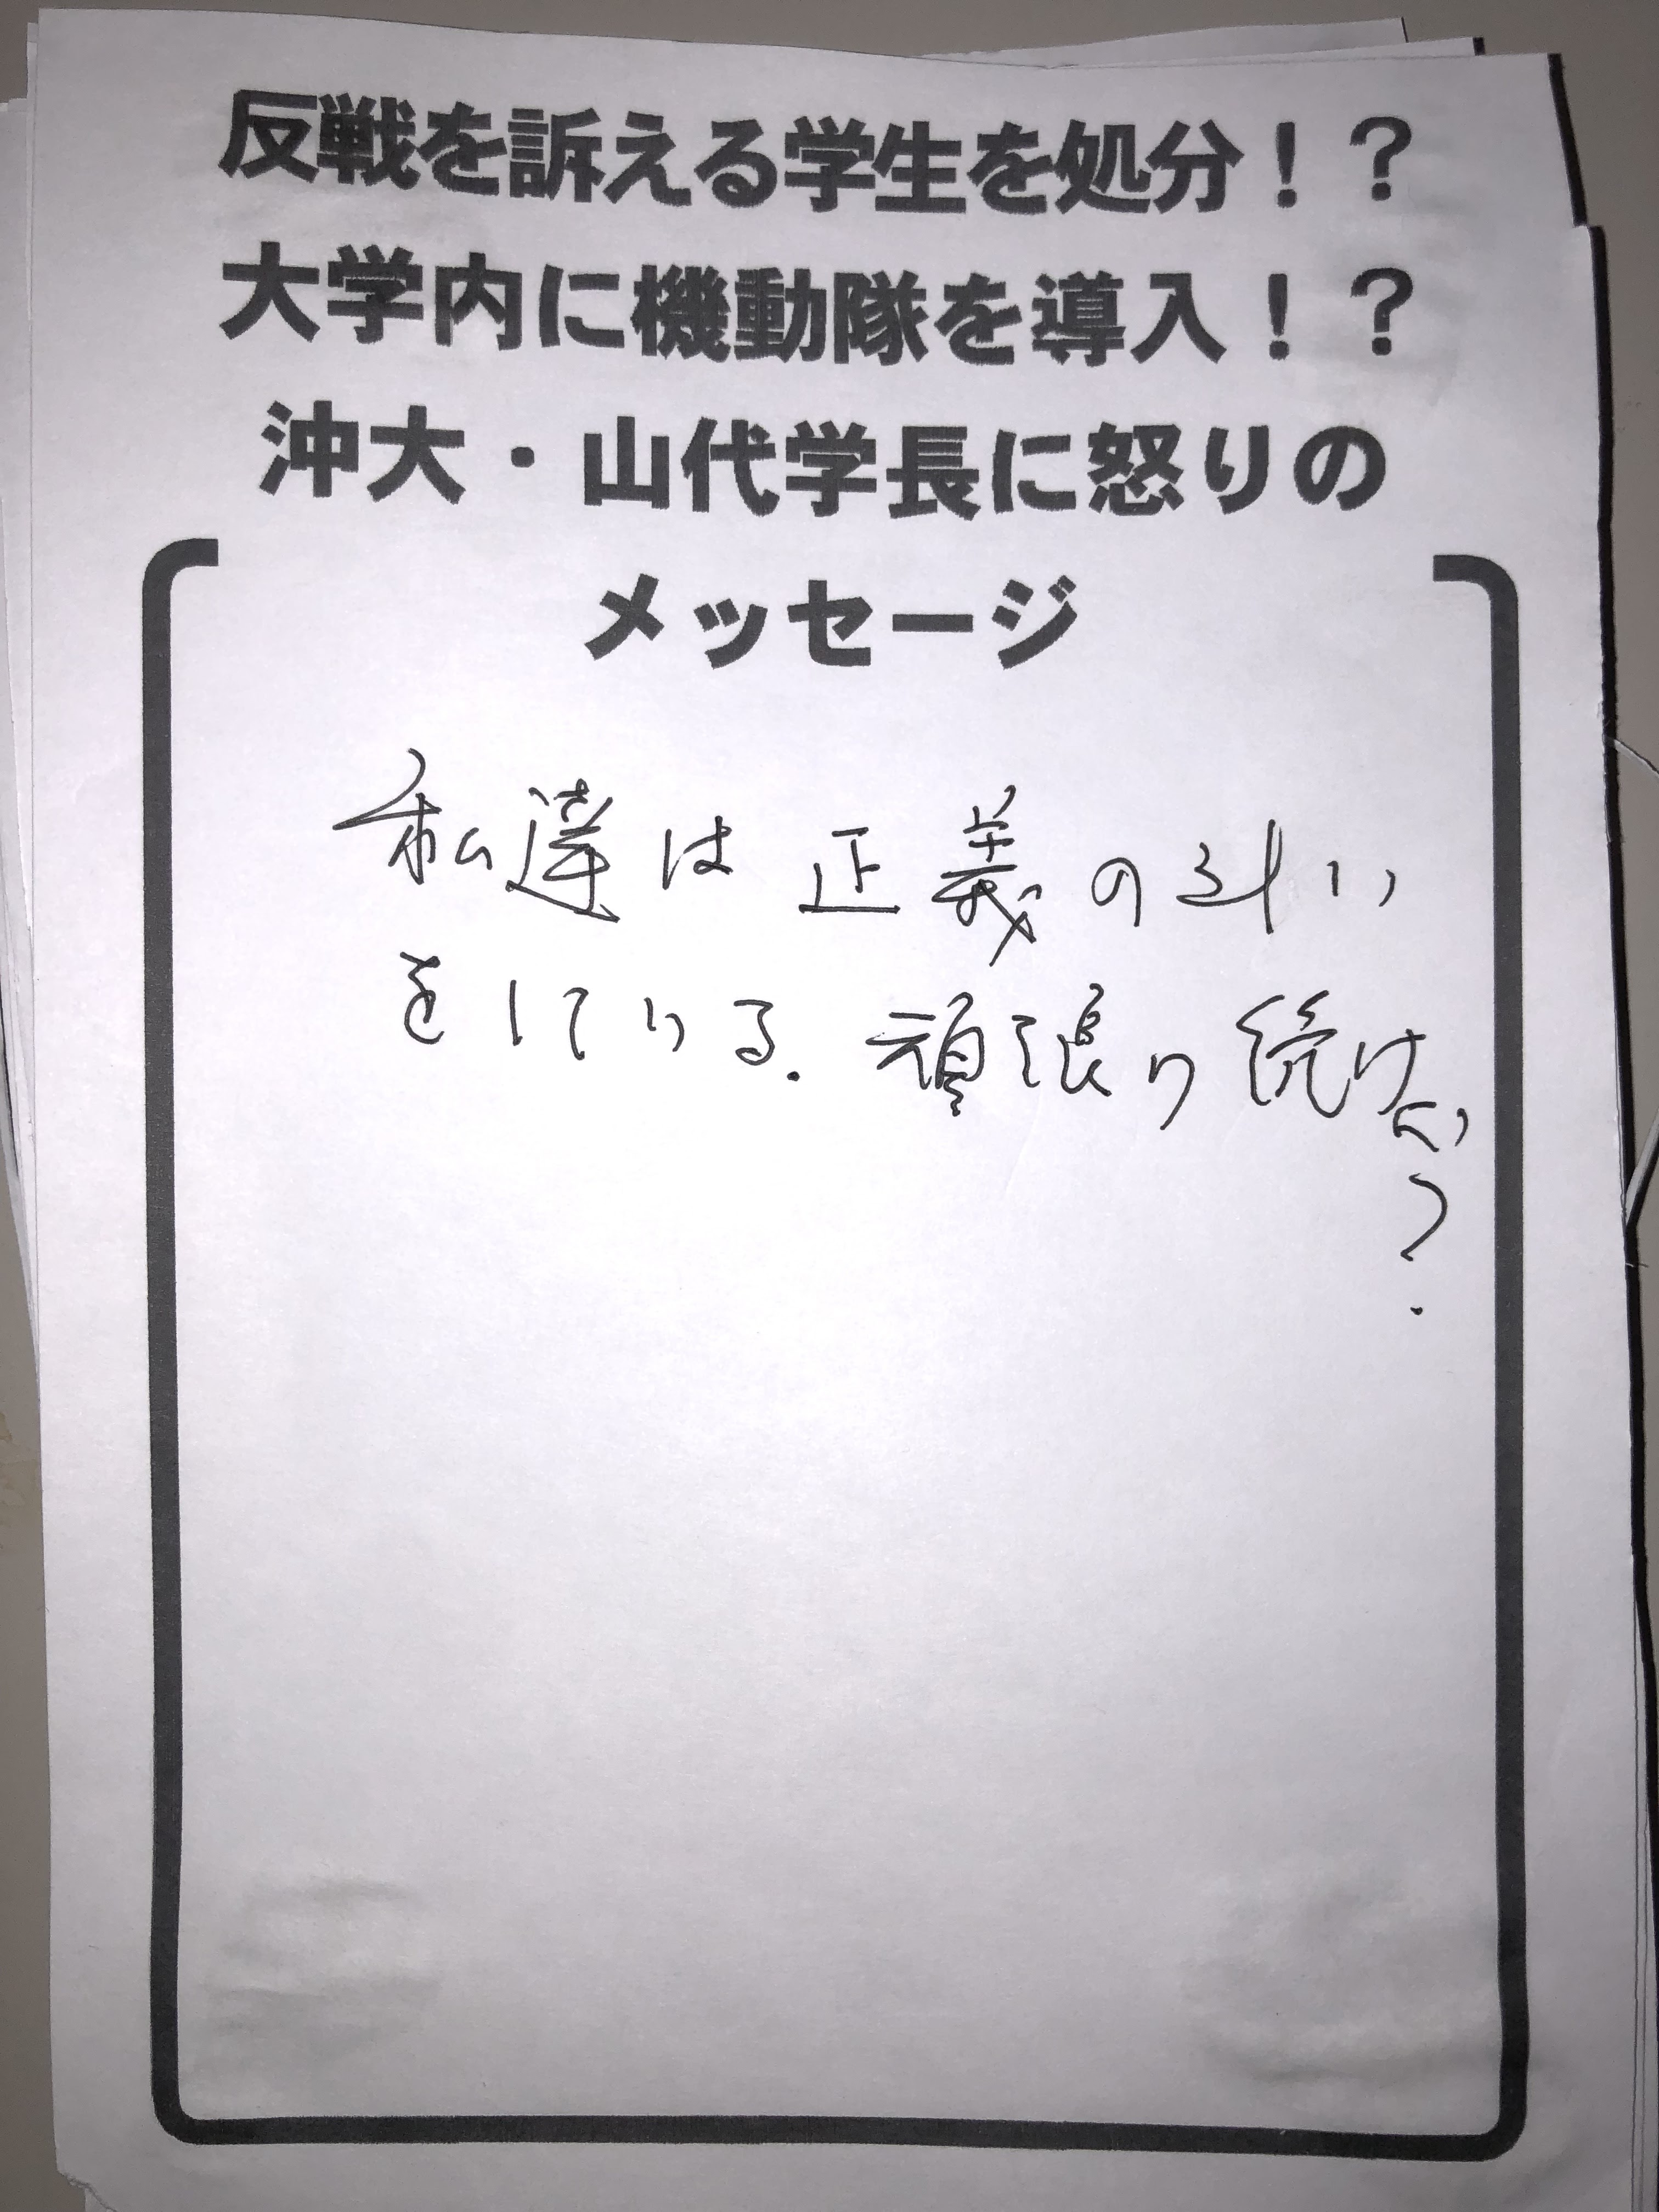 反戦を訴える学生を処分！？
大学内に機動隊を導入！？
沖大・山代学長に怒りの
メッセージ
私達は正義の斗い
をしている.頑張り続け
う.